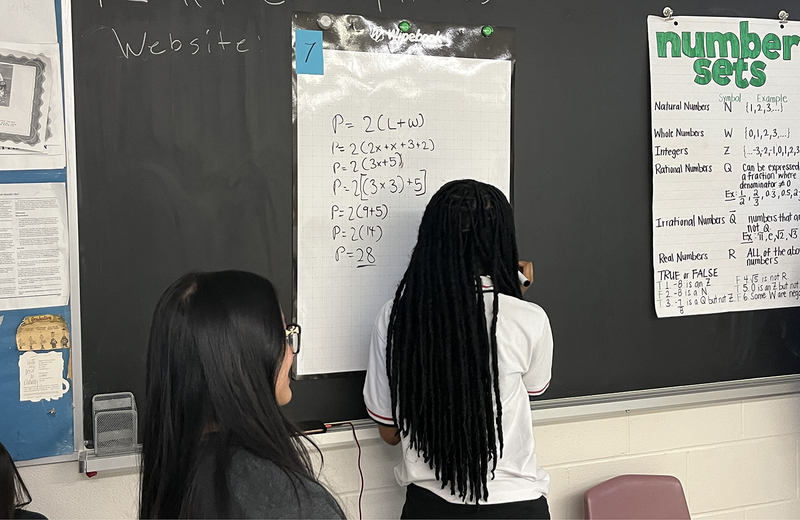 Website:
7
Wipebook
P = 2(L+W)
P = 2(2x+x+3+2)
P = 2(3x+5)
P = 2[(3×3)+5]
P = 2(9+5)
P = 2(14)
P = 28
number sets
Symbol Example
Natural Numbers N {1,2,3,...}
Whole Numbers W {0,1,2,3,...}
Integers Z {...-3,-2,-1,0,1,2,3
Rational Numbers Q Can be expressed
a fraction where
denominator ≠ 0
Ex: 1/2, 2/3, 0.3, 0.5, 2
Irrational Numbers Q̅ numbers that a
not Q
Ex: π, e, √2, √3
Real Numbers R ALL of the abo
numbers
TRUE or FALSE
T 1. -8 is an Z
F 2. -8 is a N
T 3. -7/8 is a Q but not Z
F 4. √5 is not R
T 5. 0 is an Z but not
F 6. Some W are neg